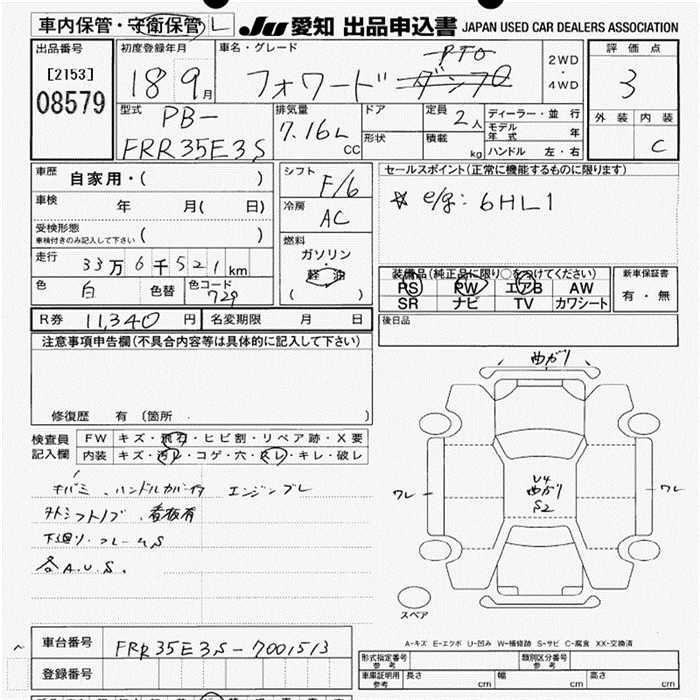 車内保管・守衛保管 L
JU 愛知 出品申込書 JAPAN USED CAR DEALERS ASSOCIATION
出品番号
[2153]
08579
初度登録年月
18 9月
車名・グレード
PTO
フォワード ダンプ
2WD
・
4WD
評価点
3
外装 内装
C
型式
PB-
FRR35E3S
排気量
7.16L
CC
ドア
形状
定員
2人
積載
kg
ディーラー・並行
モデル年式 年
ハンドル 左・右
車歴 自家用・( )
車検 年 月( 日)
受検形態
車検付きのみ記入して下さい ( )
走行 33万6千521km
色 白 色替 色コード 729
シフト F/6
冷房 AC
燃料
ガソリン
・
軽油
( )
セールスポイント(正常に機能するものに限ります)
☆ e/g: 6HL1
装備品(純正品に限り○をつけてください)
PS PW エアB AW
SR ナビ TV カワシート
新車保証書
有・無
R券 11,340 円 名変期限 月 日
後日品
注意事項申告欄(不具合内容等は具体的に記入して下さい)
修復歴 有 (箇所 )
検査員
記入欄
FW キズ・飛石・ヒビ割・リペア跡・X要
内装 キズ・汚レ・コゲ・穴・スレ・キレ・破レ
キバミ、ハンドルカバー付 エンジンブレ
外シフトノブ、看板有
下廻り・フレームS
各A.U.S.
曲がり
ワレ
U4
曲がり
S2
ワレ
スペア
A-キズ E-エクボ U-凹み W-補修跡 S-サビ C-腐食 XX-交換済
車台番号 FRR35E3S-7001513
登録番号
形式指定番号
参考
類別区分番号
参考
車庫証明用
参考
長さ cm 幅 cm 高さ cm